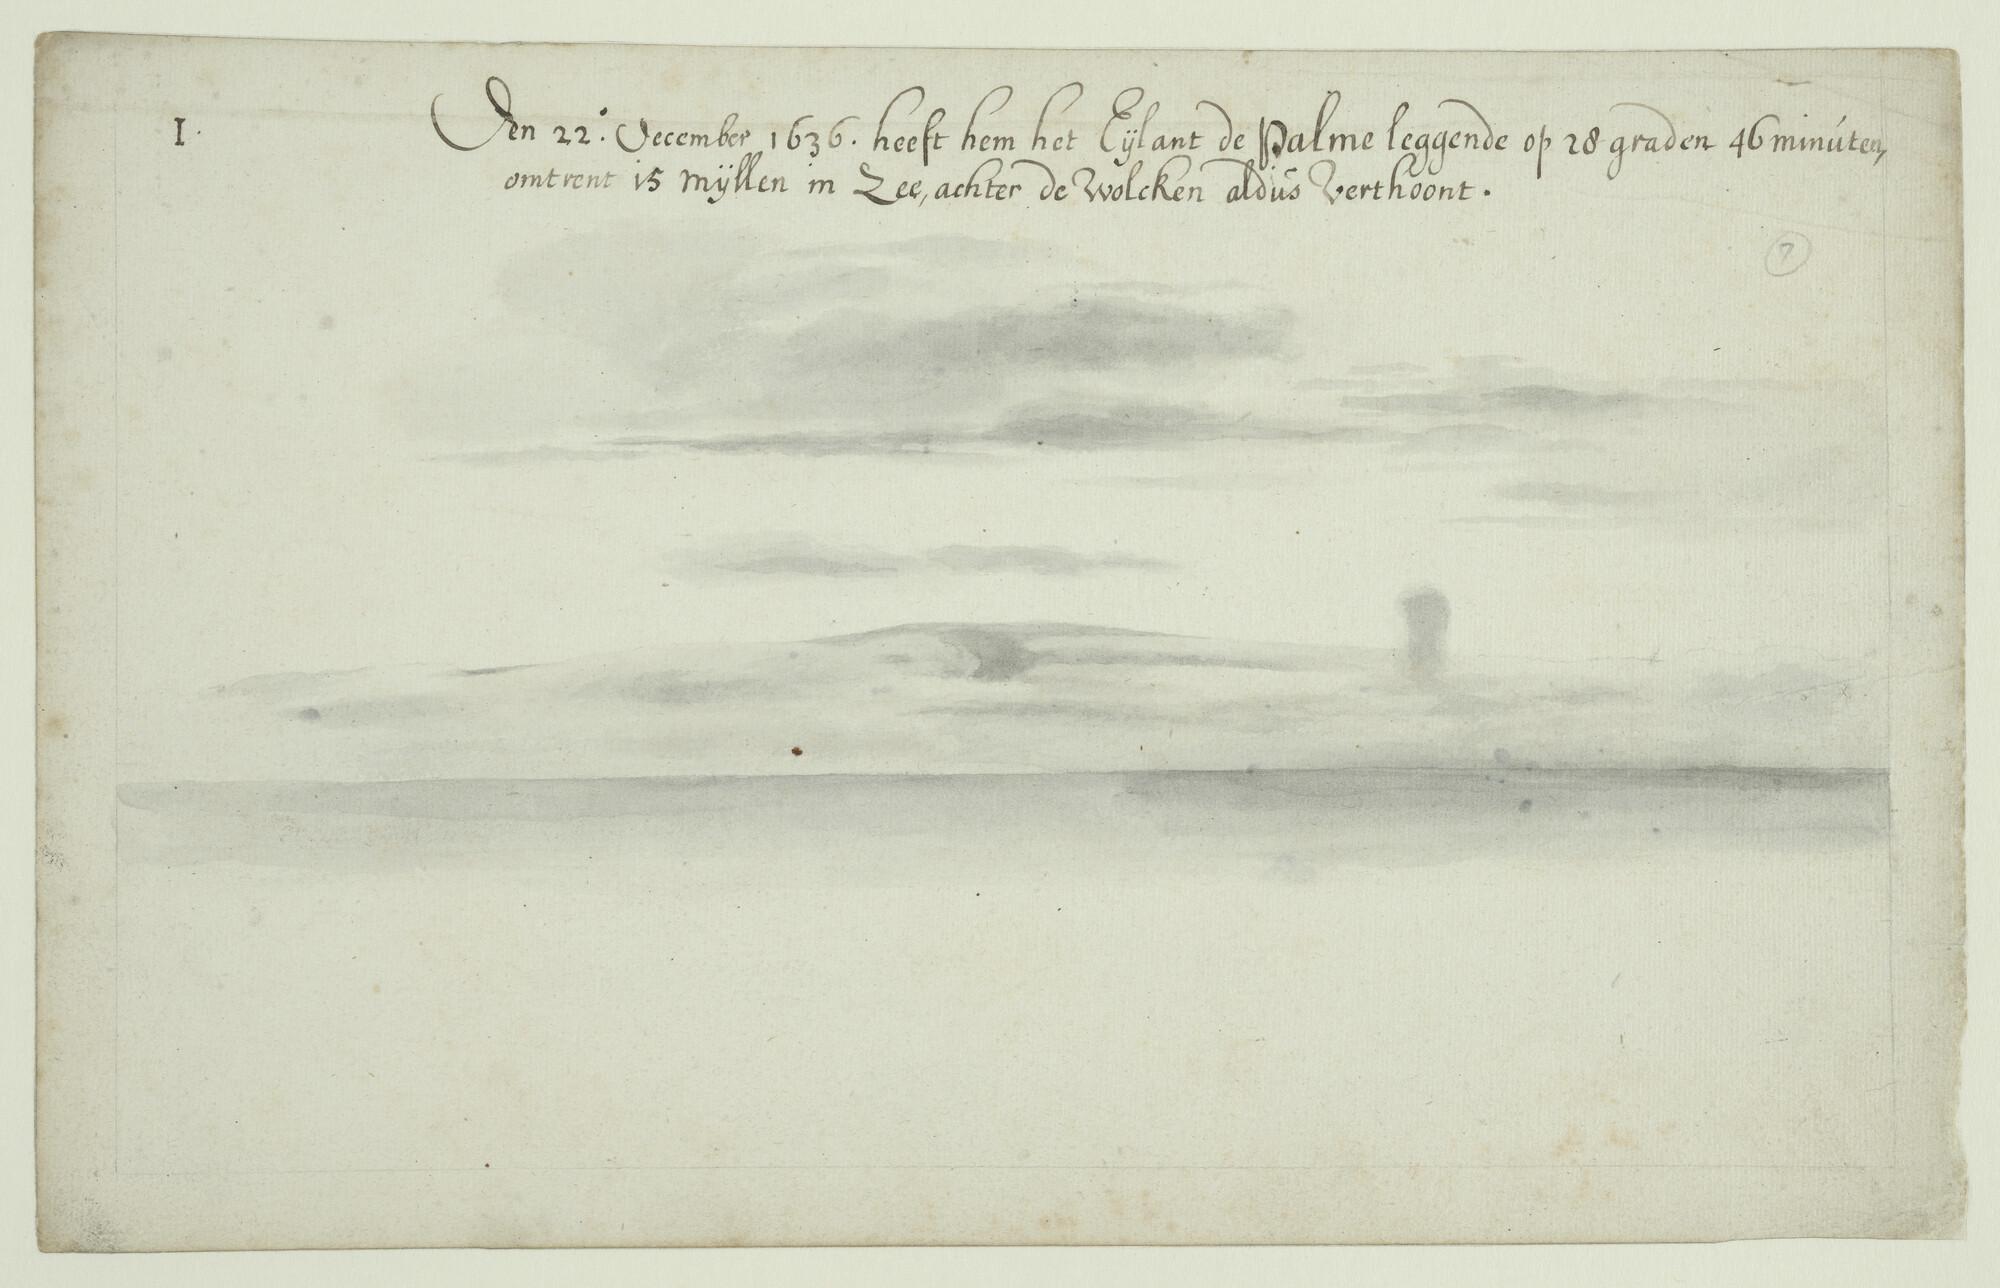 I.
Den 22.º December 1636. heeft hem het Eijlant de Palme leggende op 28 graden 46 minúten,
omtrent 15 Mijllen in Zee, achter de Wolcken aldús Verthoont.
7